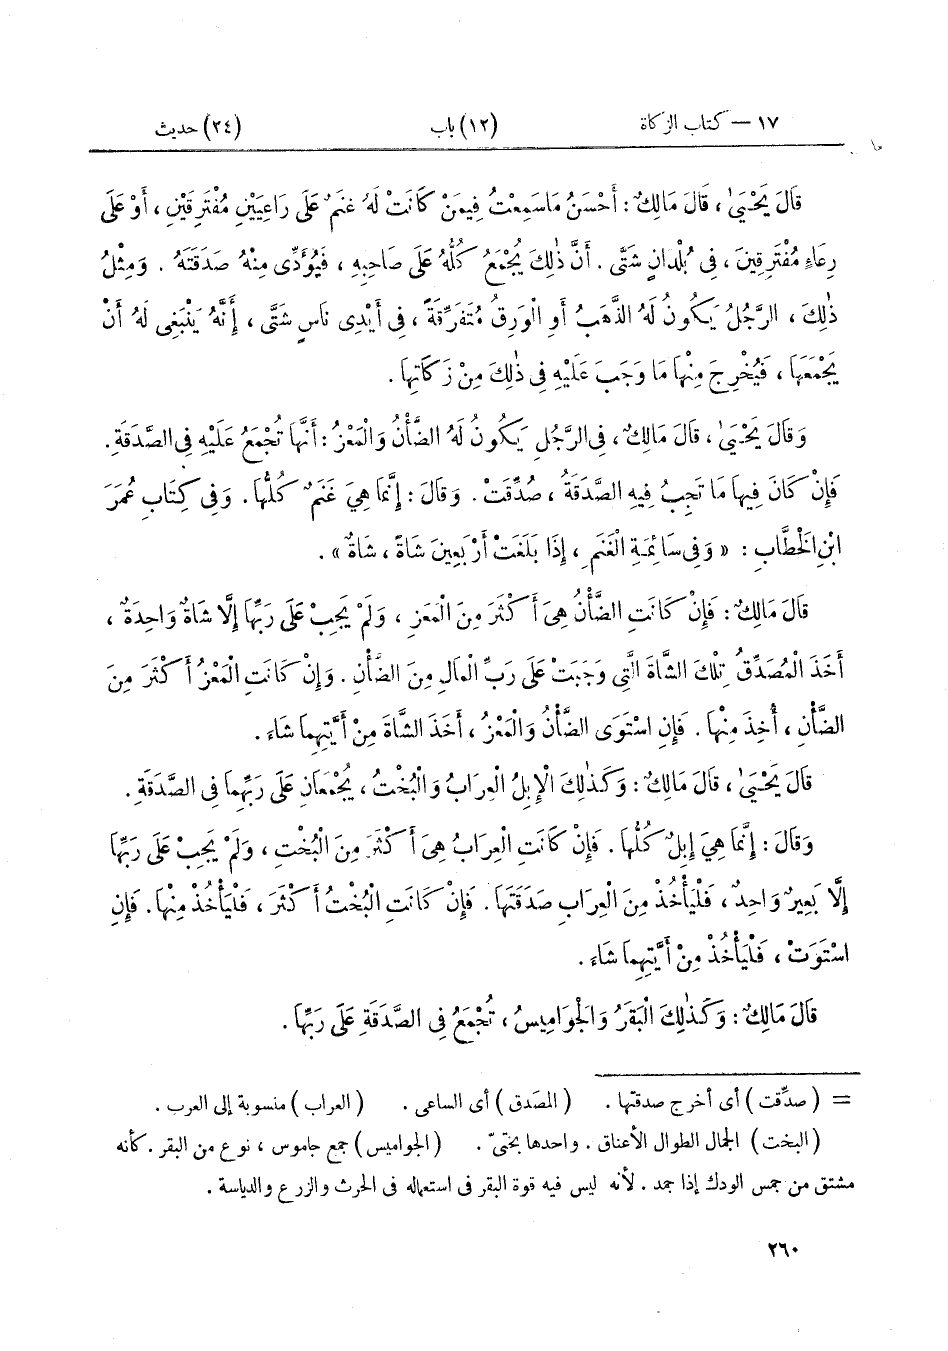 ١٧ — كتاب الزكاة (١٢) باب (٢٤) حديث
قَالَ يَحْيَىٰ ، قَالَ مَالِكٌ : أَحْسَنُ مَاسَمِعْتُ فِيمَنْ كَانَتْ لَهُ غَنَمٌ عَلَى رَاعِيَيْنِ مُفْتَرِقَيْنِ ، أَوْ عَلَى
رِعَاءِ مُفْتَرِقِينَ ، فِى بُلْدَانٍ شَتَّى . أَنَّ ذٰلِكَ يُجْمَعُ كُلُّهُ عَلَى صَاحِبِهِ ، فَيُؤَدِّى مِنْهُ صَدَقَتَهُ . وَمِثْلُ
ذٰلِكَ ، الرَّجُلُ يَكُونُ لَهُ الذَّهَبُ أَوِ الْوَرِقُ مُتَفَرِّقَةً ، فِى أَيْدِى نَاسٍ شَتَّى ، إِنَّهُ يَنْبَغِى لَهُ أَنْ
يَجْمَعَهَا ، فَيُخْرِجَ مِنْهَا مَا وَجَبَ عَلَيْهِ فِى ذٰلِكَ مِنْ زَكَاتِهَا .
وَقَالَ يَحْيَىٰ ، قَالَ مَالِكٌ ، فِى الرَّجُلِ يَكُونُ لَهُ الضَّأْنُ وَالْمَعْزُ : أَنَّهَا تُجْمَعُ عَلَيْهِ فِى الصَّدَقَةِ .
فَإِنْ كَانَ فِيهَا مَا تَجِبُ فِيهِ الصَّدَقَةُ ، صُدِّقَتْ . وَقَالَ : إِنَّمَا هِيَ غَنَمٌ كُلُّهَا . وَفِى كِتَابِ عُمَرَ
ابْنِ الْخَطَّابِ : « وَفِى سَائِمَةِ الْغَنَمِ ، إِذَا بَلَغَتْ أَرْبَعِينَ شَاةً ، شَاةٌ » .
قَالَ مَالِكٌ : فَإِنْ كَانَتِ الضَّأْنُ هِىَ أَكْثَرَ مِنَ الْمَعْزِ ، وَلَمْ يَجِبْ عَلَى رَبِّهَا إِلَّا شَاةٌ وَاحِدَةٌ ،
أَخَذَ الْمُصَدِّقُ تِلْكَ الشَّاةَ الَّتِى وَجَبَتْ عَلَى رَبِّ الْمَالِ مِنَ الضَّأْنِ . وَإِنْ كَانَتِ الْمَعْزُ أَكْثَرَ مِنَ
الضَّأْنِ ، أُخِذَ مِنْهَا . فَإِنِ اسْتَوَى الضَّأْنُ وَالْمَعْزُ ، أَخَذَ الشَّاةَ مِنْ أَيَّتِهِمَا شَاءَ .
قَالَ يَحْيَىٰ ، قَالَ مَالِكٌ : وَكَذٰلِكَ الْإِبِلُ الْعِرَابُ وَالْبُخْتُ ، يُجْمَعَانِ عَلَى رَبِّهِمَا فِى الصَّدَقَةِ .
وَقَالَ : إِنَّمَا هِيَ إِبِلٌ كُلُّهَا . فَإِنْ كَانَتِ الْعِرَابُ هِىَ أَكْثَرَ مِنَ الْبُخْتِ ، وَلَمْ يَجِبْ عَلَى رَبِّهَا
إِلَّا بَعِيرٌ وَاحِدٌ ، فَلْيَأْخُذْ مِنَ الْعِرَابِ صَدَقَتَهَا . فَإِنْ كَانَتِ الْبُخْتُ أَكْثَرَ ، فَلْيَأْخُذْ مِنْهَا . فَإِنِ
اسْتَوَتْ ، فَلْيَأْخُذْ مِنْ أَيَّتِهِمَا شَاءَ .
قَالَ مَالِكٌ : وَكَذٰلِكَ الْبَقَرُ وَالْجَوَامِيسُ ، تُجْمَعُ فِى الصَّدَقَةِ عَلَى رَبِّهَا .
= ( صدِّقت ) أى أخرج صدقتها . ( المصَدق ) أى الساعى . ( العراب ) منسوبة إلى العرب .
( البخت ) الجمال الطوال الأعناق . واحدها بختىّ . ( الجواميس ) جمع جاموس ، نوع من البقر . كأنه
مشتق من جمس الودك إذا جمد . لأنه ليس فيه قوة البقر فى استعماله فى الحرث والزرع والدياسة .
٢٦٠